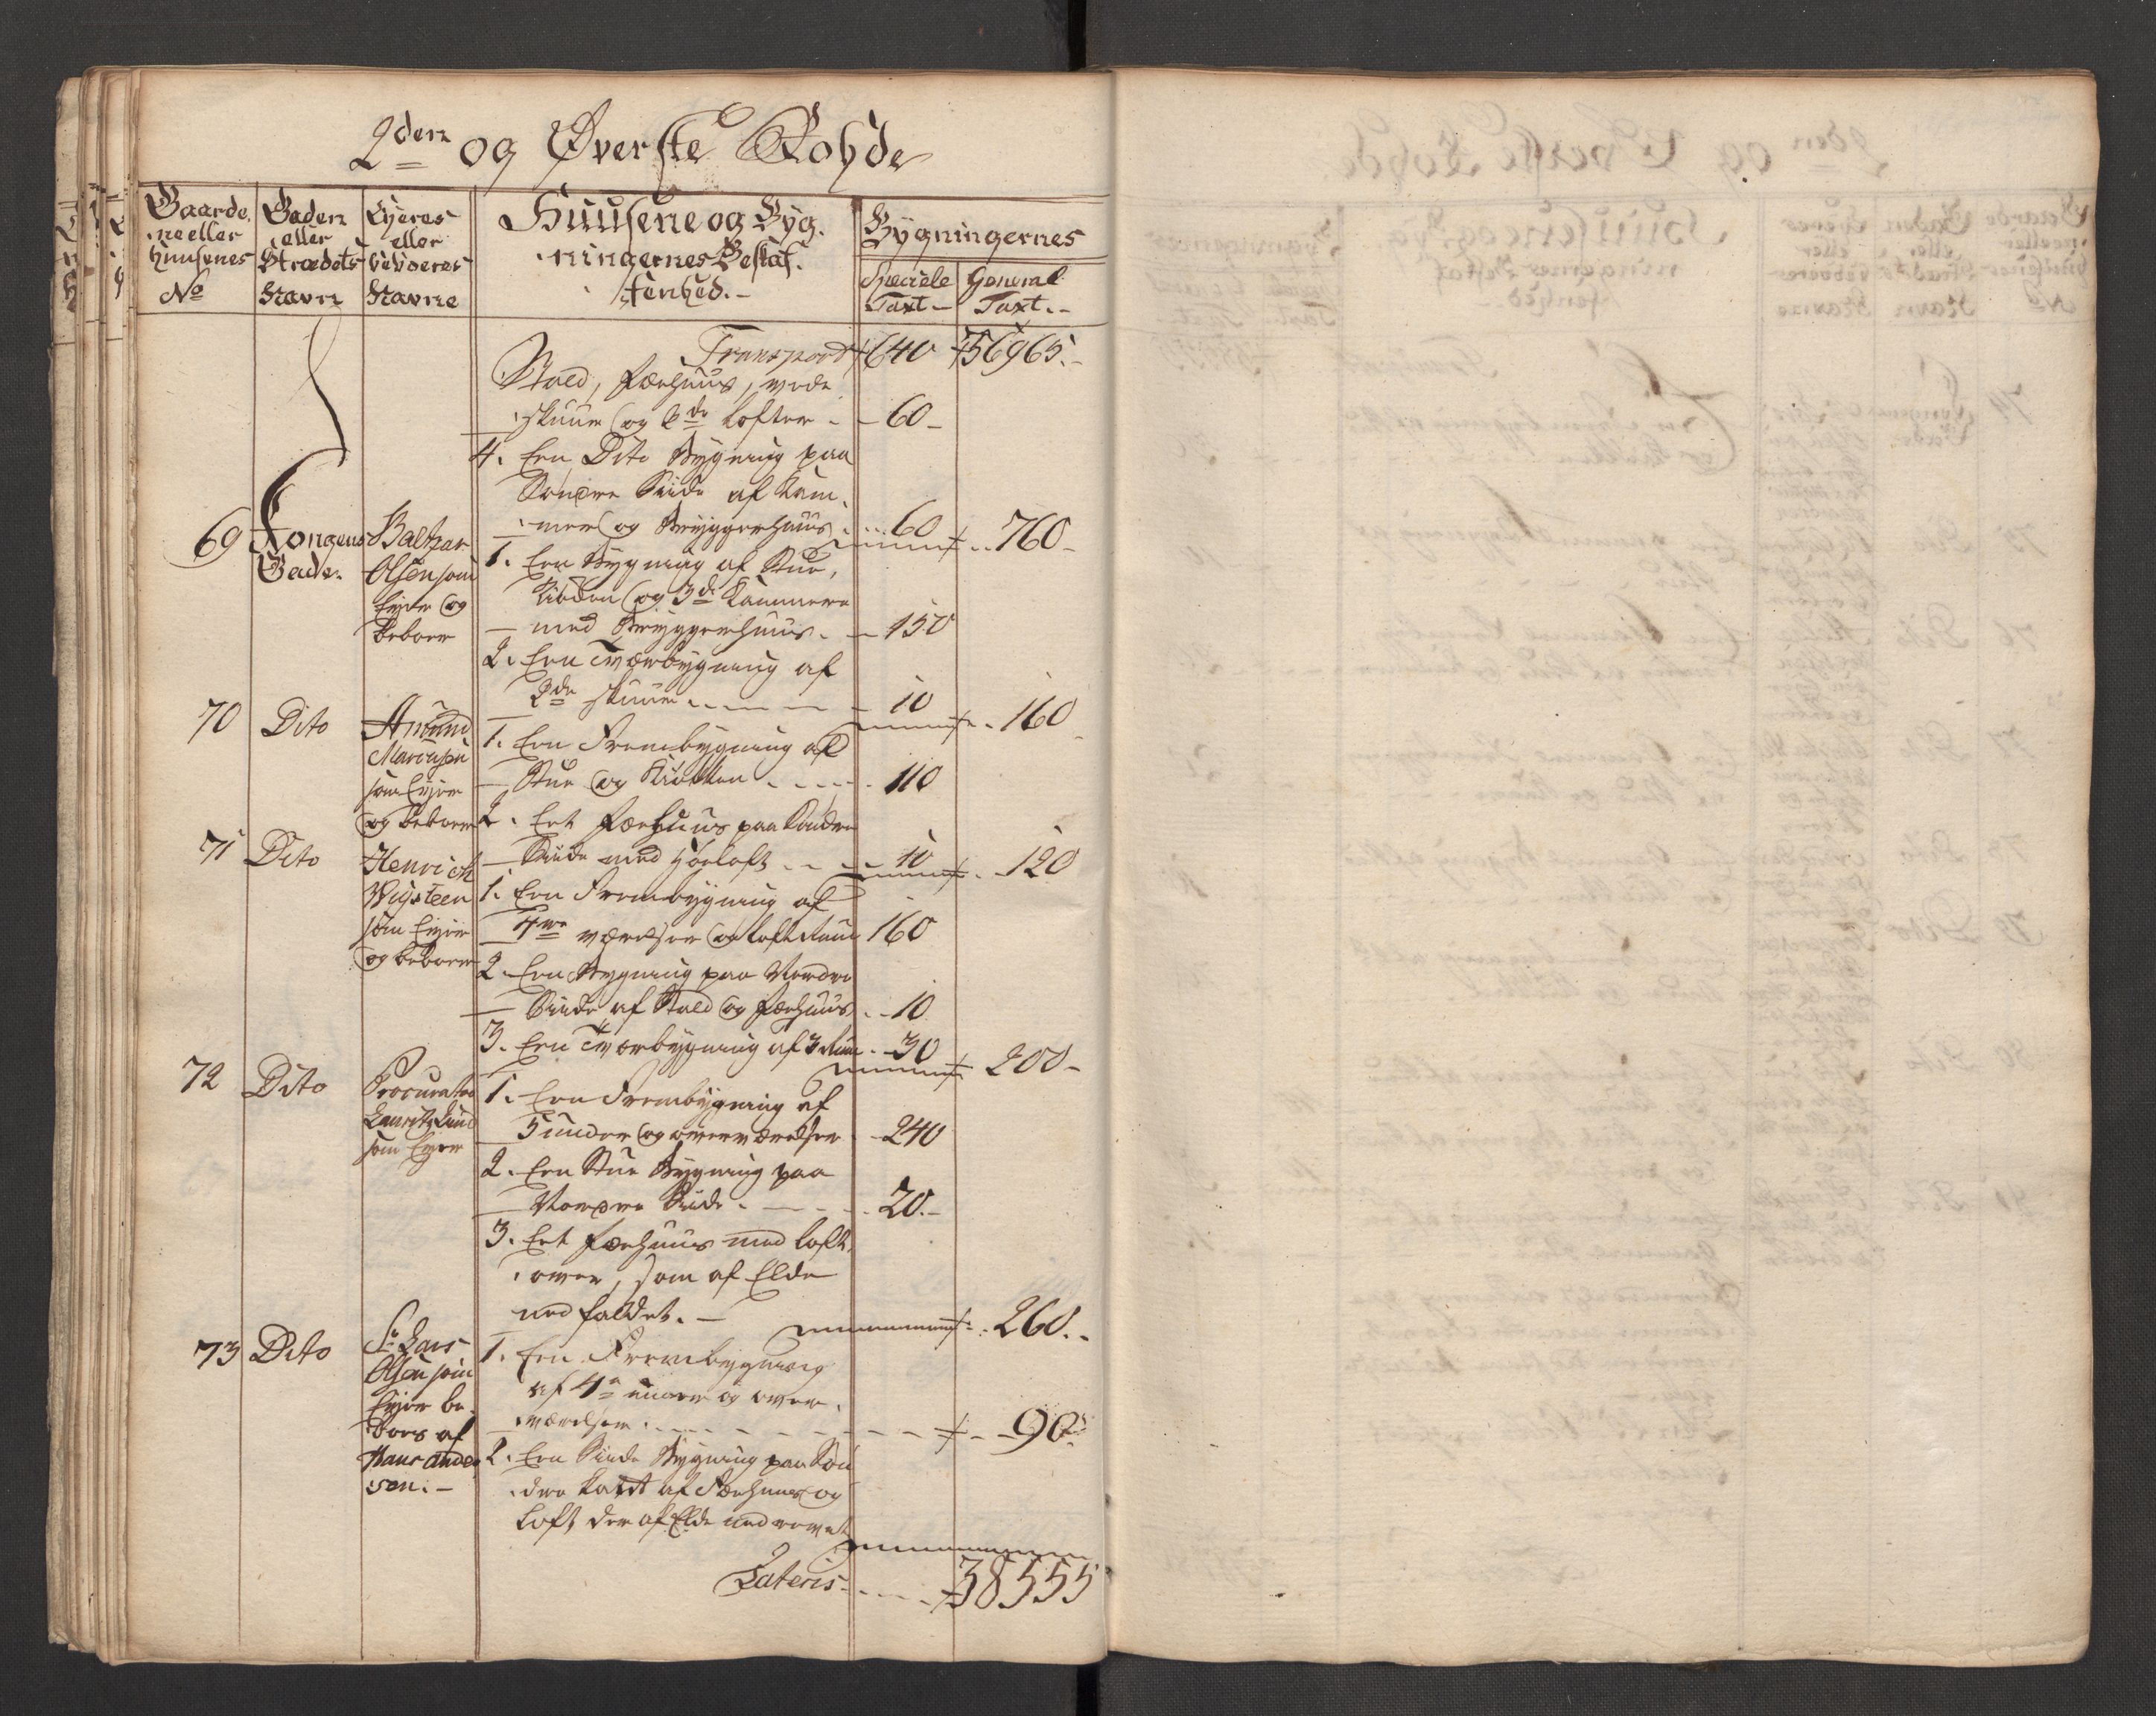 2den og Øverste Rohde
Gaarde,
ne eller
Huusenes
No
Gaden
eller
Strædets
Navn
Eyeres
eller
beboeres
Navne
Huusene og Byg.
ningernes Beskaf.
fenhed. -
Bygningernes
Speciele
Taxt -
General
Taxt. -
Transport 640 36965. -
Stald, Fæehuus, vede
skuur og 2de Lofter - - 60 -
4. Een Dito Bygning paa
Søndre Siide af Kam,
mer og Bryggerhuus . 60 760 -
69 Kongens
Gade.
Baltzar
Olsen som
Eyer og
beboer
1. Een Bygning af Stue,
Kiøken og 3de Kammere
med Bryggerhuus. - 150
2. Een Tværbygning af
2de skuure - - - 10 160
70 Dito
Amund
Marcusen
som Eyer
og beboer
1. Een Frembygning af
Stue og Kiøkken - - - 110
2. Eet Fæehuus paa Søndre
Siide med Høeloft - - 10 120
71 Dito
Henrich
Wigsteen
som Eyer
og beboer
1. Een Frembygning af
4re værelser og loft Ruum 160
2. Een Bygning paa Nordre
Siide af Stald og Fæehuus - 10
3. Een Tværbygning af 3 Rum - 30 200 -
72 Dito
Procurator
Lauritz Lund
som Eyer
1. Een Frembygning af
5 under og overværelser - 240
2. Een Stue Bygning paa
Nordre Siide - - - 20. -
3. Eet Fæehuus med loft
over, som af Elde
nedfaldet. - 260. -
73 Dito
Sr. Lars
Olsen som
Eyer be,
boes af
Hans Ander
sen. -
1. Een Frembygning
af 4re under og over,
værelser. - - - 90
2. Een Siide Bygning paa Søn
dre Kant af Fæehuus og
Loft der af Elde nedrevet
Lateris - - - 38555